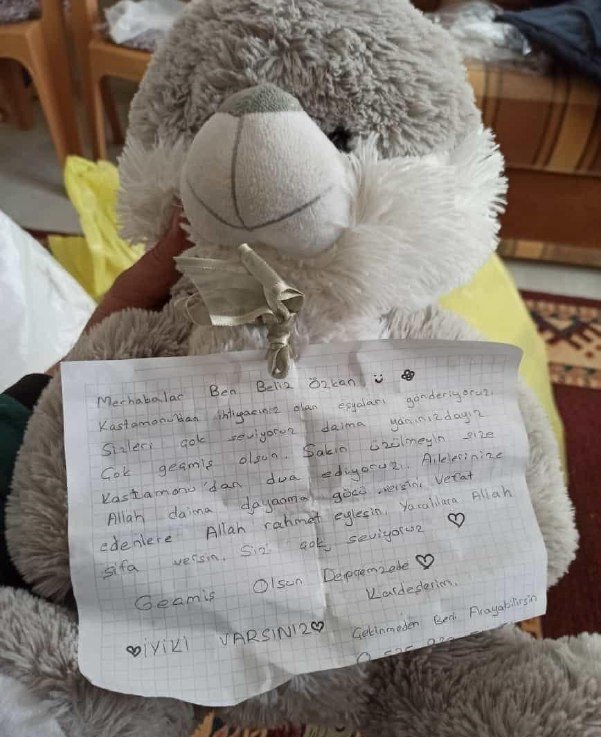 Merhabalar Ben Beliz Özkan
Kastamonu'dan ihtiyacınız olan eşyaları gönderiyoruz.
Sizleri çok seviyoruz daima yanınızdayız
Çok geçmiş olsun. Sakın üzülmeyin size
Kastamonu'dan dua ediyoruz. Ailelerinize
Allah daima dayanma gücü versin. Vefat
edenlere Allah rahmet eylesin. Yaralılara Allah
şifa versin. Sizi çok seviyoruz ♡
Geçmiş Olsun Depremzede ♡
Kardeşlerim.
♡İYİKİ VARSINIZ♡ Çekinmeden Beni Arayabilirsin